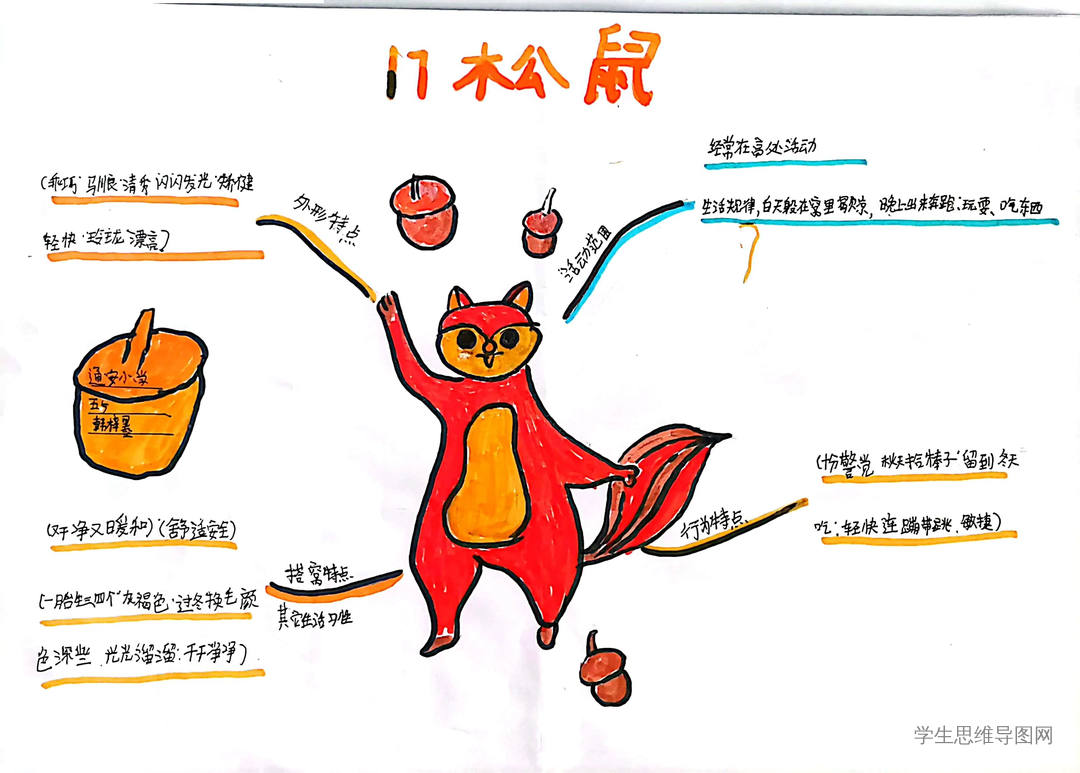 17 松鼠
(乖巧·驯良·清秀·闪闪发光·矫健
轻快·玲珑·漂亮)
外形特点
经常在高处活动
生活规律,白天躲在窝里歇凉,晚上出来奔跑;玩耍、吃东西
活动范围
通安小学
五
(十份警觉 秋天拾榛子·留到冬天
吃;轻快连蹦带跳、敏捷)
行为特点
(又干净又暖和)(舒适安全)
搭窝特点
其它生活习性
(一胎生三四个·灰褐色·过冬换毛颜
色深些、光光溜溜;干干净净)
学生思维导图网